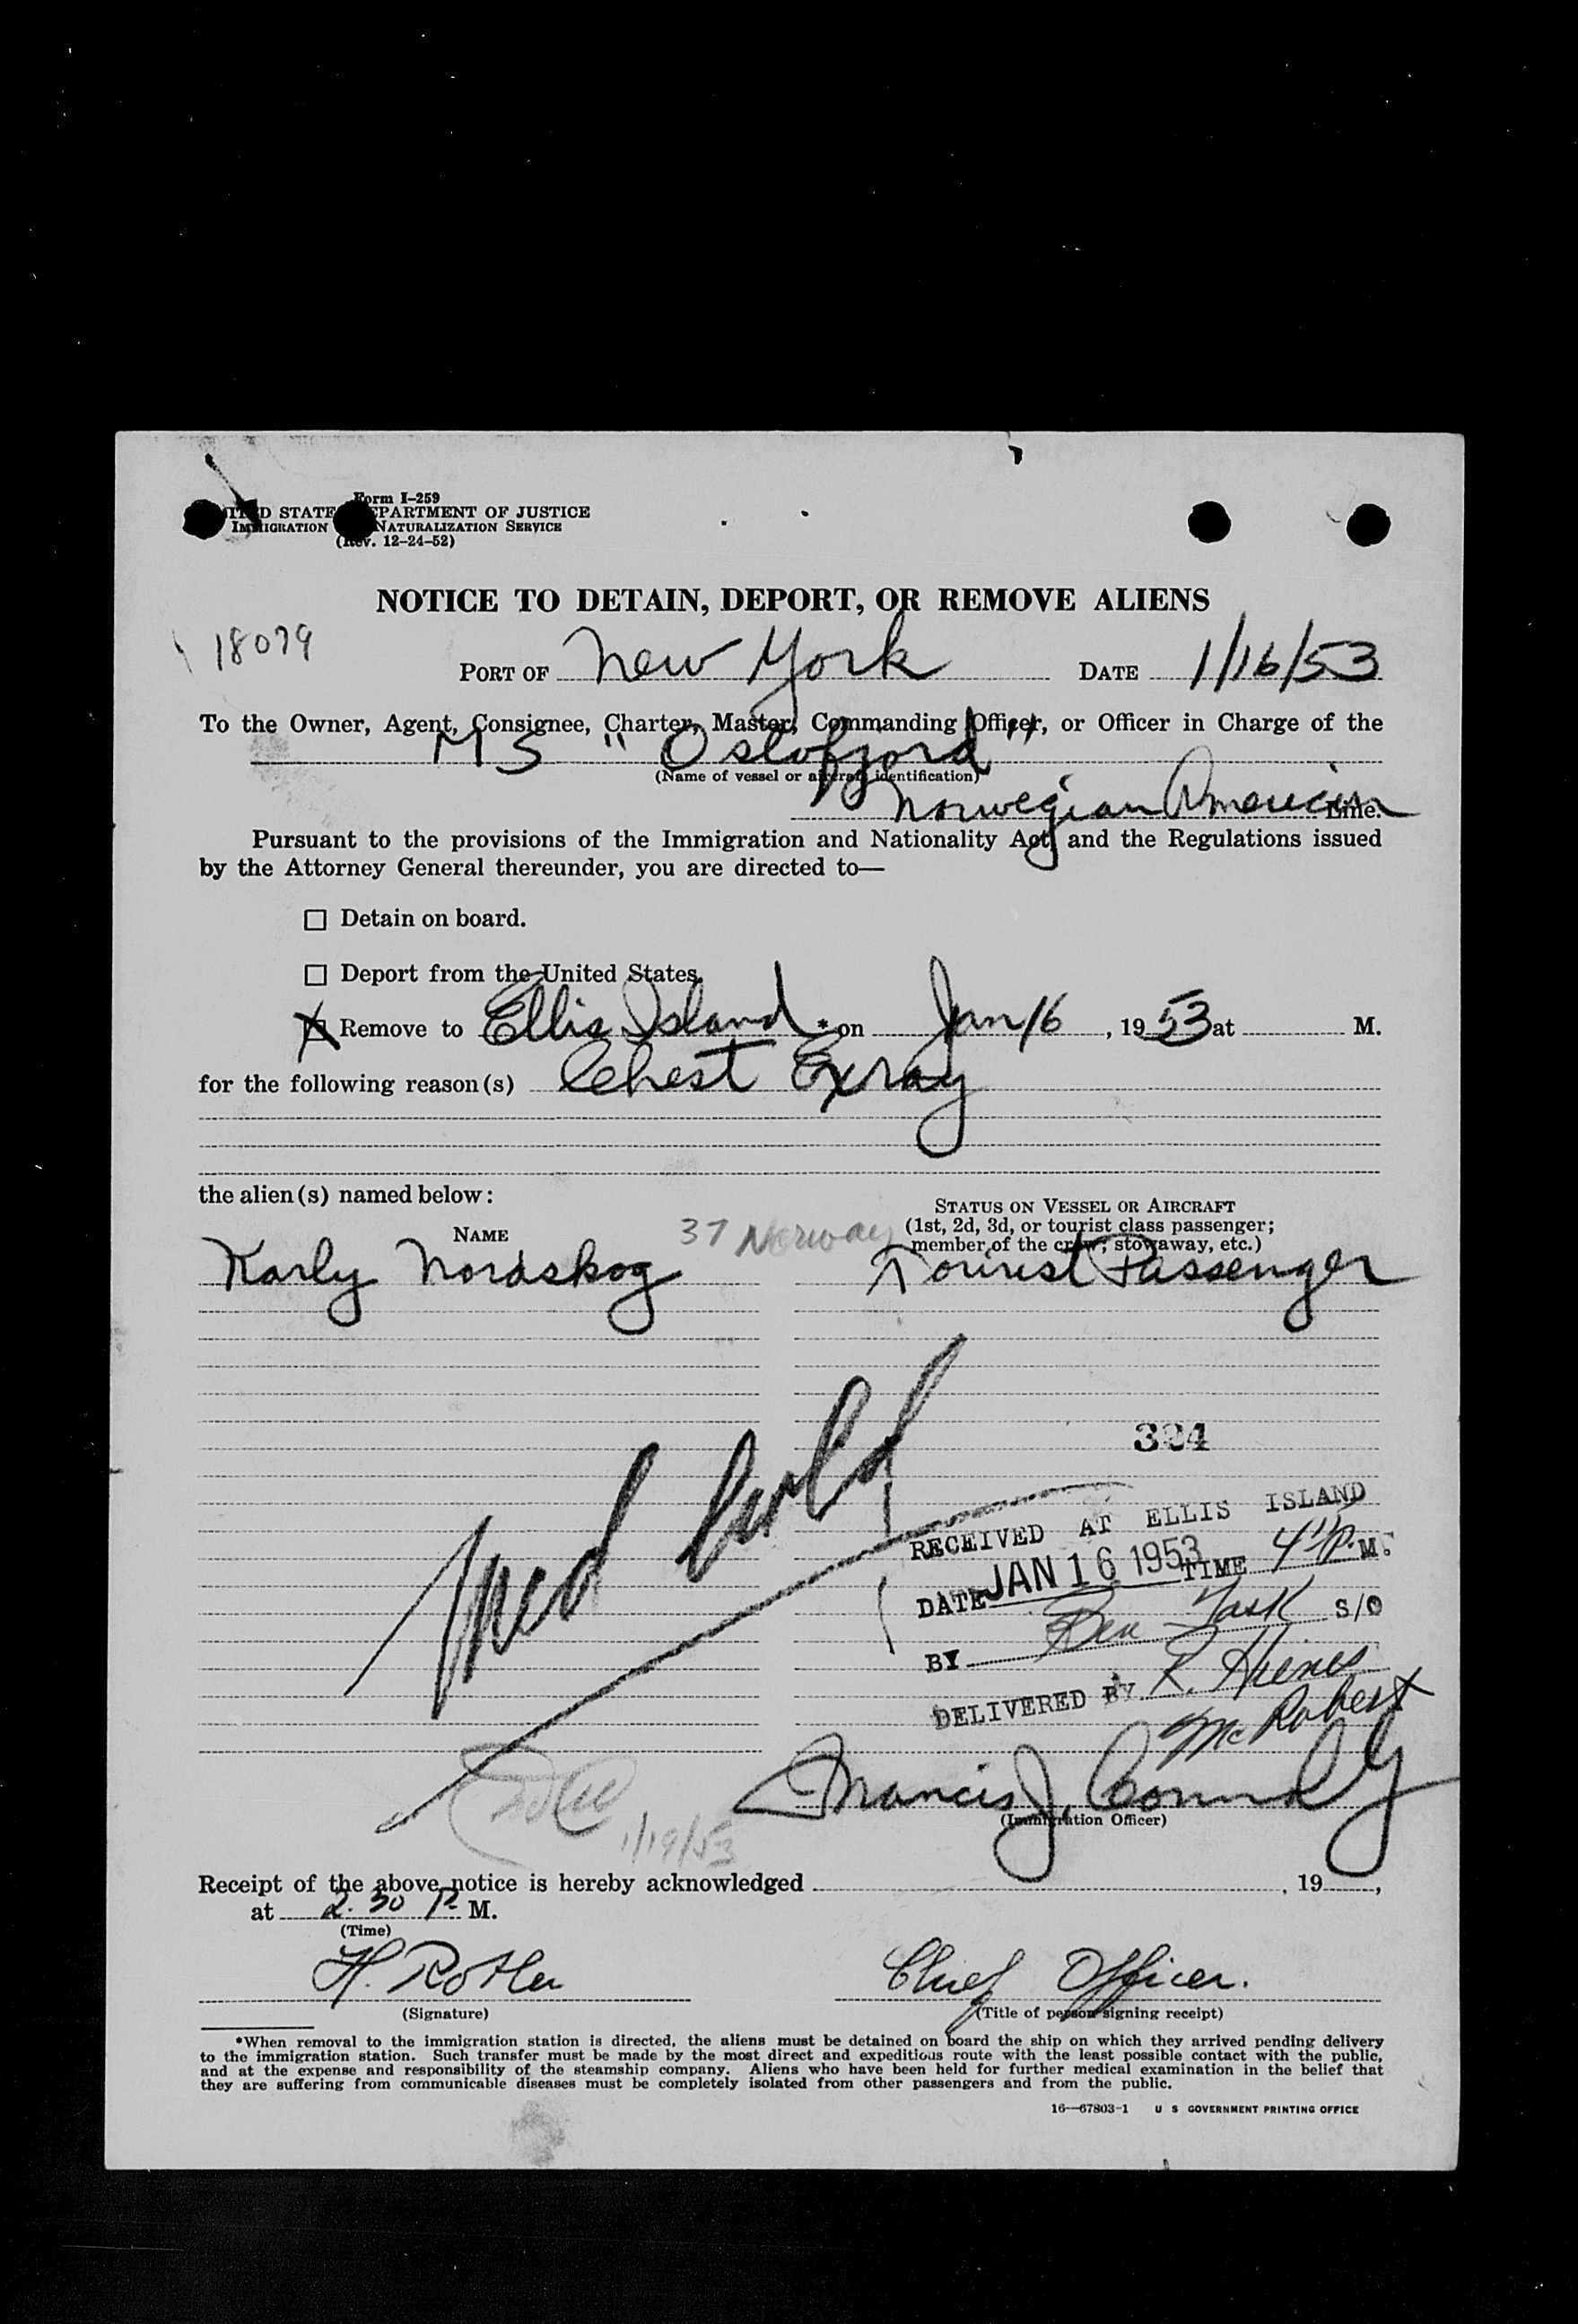 Form I-259
UNITED STATES DEPARTMENT OF JUSTICE
IMMIGRATION NATURALIZATION SERVICE
(Rev. 12-24-52)
NOTICE TO DETAIN, DEPORT, OR REMOVE ALIENS
18079
PORT OF New York DATE 1/16/53
To the Owner, Agent, Consignee, Charter, Master, Commanding Officer, or Officer in Charge of the
MS "Oslofjord"
(Name of vessel or aircraft identification)
Norwegian American Line.
Pursuant to the provisions of the Immigration and Nationality Act, and the Regulations issued
by the Attorney General thereunder, you are directed to—
☐ Detain on board.
☐ Deport from the United States.
☒ Remove to Ellis Island * on Jan 16, 1953 at M.
for the following reason(s) Chest Exray
the alien(s) named below:
NAME
37 Norway
STATUS ON VESSEL OR AIRCRAFT
(1st, 2d, 3d, or tourist class passenger;
member of the crew; stowaway, etc.)
Karly Nordskog Tourist Passenger
Med
324
RECEIVED AT ELLIS ISLAND
DATE JAN 16 1953 TIME 4 P. M.
BY Ben Task S/O
DELIVERED BY R. Hienes
McRobert
Francis J. Connoly
(Immigration Officer)
1/19/53
Receipt of the above notice is hereby acknowledged , 19 ,
at 2.30 P. M.
(Time)
H. Chief Officer.
(Signature) (Title of person signing receipt)
*When removal to the immigration station is directed, the aliens must be detained on board the ship on which they arrived pending delivery
to the immigration station. Such transfer must be made by the most direct and expeditious route with the least possible contact with the public,
and at the expense and responsibility of the steamship company. Aliens who have been held for further medical examination in the belief that
they are suffering from communicable diseases must be completely isolated from other passengers and from the public.
16—67803-1 U S GOVERNMENT PRINTING OFFICE